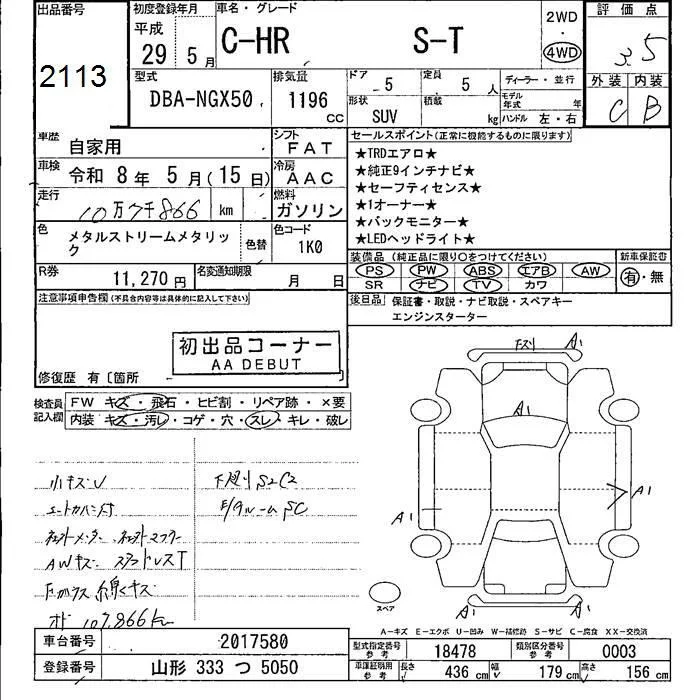 出品番号 初度登録年月 車名・グレード 2WD 評価点
平成 29 5月 C-HR S-T 4WD 3.5
2113
型式 排気量 ドア 5 定員 5人 ディーラー・並行 外装 内装
DBA-NGX50 1196 CC 形状 SUV 積載 kg モデル年式 年 ハンドル 左・右 C B
車歴 自家用 シフト FAT セールスポイント(正常に機能するものに限ります)
車検 令和 8年 5月(15日) 冷房 AAC
走行 10万7千866 km 燃料 ガソリン
色 メタルストリームメタリック 色替 色コード 1K0
★TRDエアロ★
★純正9インチナビ★
★セーフティセンス★
★1オーナー★
★バックモニター★
★LEDヘッドライト★
装備品(純正品に限り○をつけてください) 新車保証書
PS PW ABS エアB AW 有・無
SR ナビ TV カワ
R券 11,270円 名変通知期限 月 日
後日品 保証書・取説・ナビ取説・スペアキー
エンジンスターター
注意事項申告欄(不具合内容等は具体的に記入して下さい)
初出品コーナー
AA DEBUT
修復歴 有〔箇所
検査員記入欄 FW キズ・飛石・ヒビ割・リペア跡・×要
内装 キズ・汚レ・コゲ・穴・スレ・キレ・破レ
小キズU
シートカバー付
AWキズ スタッドレスT
Fガラス 線キズ
オド 107,866km
下廻りS2C2
E/GルームSC
下スリ A1 A1
A1
A1 A1
A1 A1
スペア
A-キズ E-エクボ U-凹み W-補修跡 S-サビ C-腐食 XX-交換済
車台番号 2017580 型式指定番号参考 18478 類別区分番号参考 0003
登録番号 山形 333 つ 5050 車庫証明用参考 長さ 436cm 幅 179cm 高さ 156cm